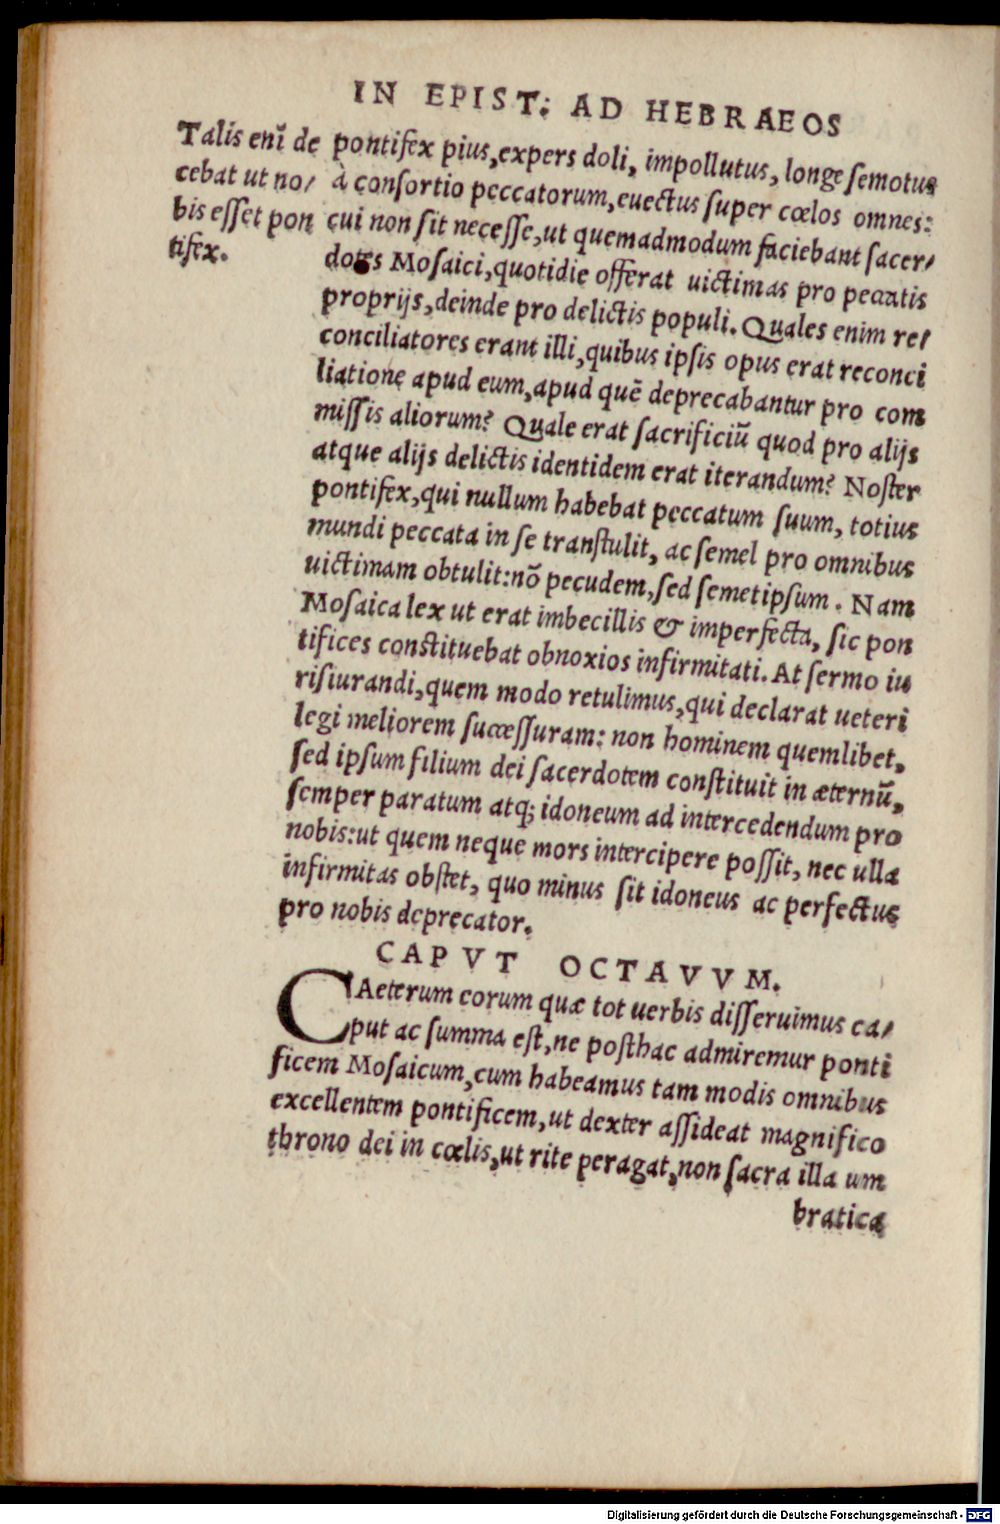 IN EPIST: AD HEBRAEOS
Talis enĩ de
cebat ut no/
bis esset pon
tifex.
pontifex pius, expers doli, impollutus, longe semotus
à consortio peccatorum, euectus super cœlos omnes:
cui non sit necesse, ut quemadmodum faciebant sacer/
dotes Mosaici, quotidie offerat uictimas pro peccatis
proprijs, deinde pro delictis populi. Quales enim re/
conciliatores erant illi, quibus ipsis opus erat reconci
liatione apud eum, apud quẽ deprecabantur pro com
missis aliorum? Quale erat sacrificiũ quod pro alijs
atque alijs delictis identidem erat iterandum? Noster
pontifex, qui nullum habebat peccatum suum, totius
mundi peccata in se transtulit, ac semel pro omnibus
uictimam obtulit: nõ pecudem, sed semetipsum. Nam
Mosaica lex ut erat imbecillis & imperfecta, sic pon
tifices constituebat obnoxios infirmitati. At sermo iu
risiurandi, quem modo retulimus, qui declarat ueteri
legi meliorem successuram: non hominem quemlibet,
sed ipsum filium dei sacerdotem constituit in æternũ,
semper paratum atq; idoneum ad intercedendum pro
nobis: ut quem neque mors intercipere possit, nec ulla
infirmitas obstet, quo minus sit idoneus ac perfectus
pro nobis deprecator.
CAPVT OCTAVVM.
CAeterum eorum quæ tot uerbis disseruimus ca/
put ac summa est, ne posthac admiremur ponti
ficem Mosaicum, cum habeamus tam modis omnibus
excellentem pontificem, ut dexter assideat magnifico
throno dei in cœlis, ut rite peragat, non sacra illa um
bratica
Digitalisierung gefördert durch die Deutsche Forschungsgemeinschaft - DFG